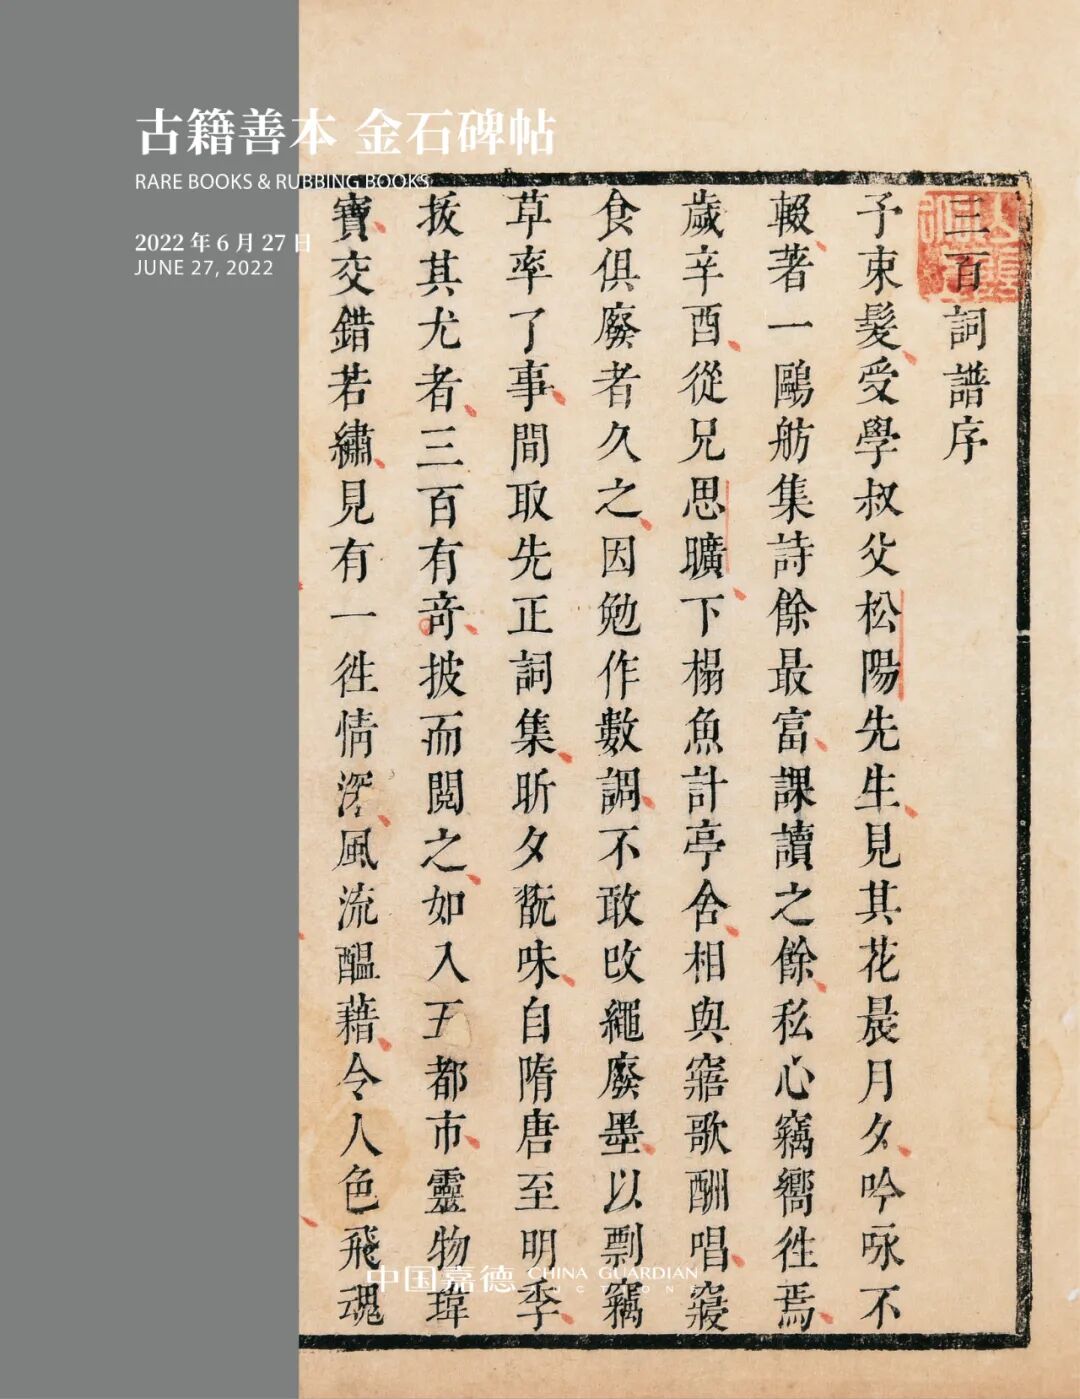 古籍善本 金石碑帖
RARE BOOKS & RUBBING BOOKS
2022 年 6 月 27 日
JUNE 27, 2022
三百詞譜序
予束髮受學叔父松陽先生見其花晨月夕吟咏不
輟著一鷗舫集詩餘最富課讀之餘私心竊嚮徃焉
歲辛酉從兄思曠下榻魚計亭舍相與寤歌酬唱寢
食俱廢者久之因勉作數調不敢改繩廢墨以剽竊
草率了事間取先正詞集昕夕翫味自隋唐至明季
拔其尤者三百有竒披而閲之如入五都市靈物瑋
寶交錯若繡見有一徃情深風流醞藉令人色飛魂
中国嘉德 CHINA GUARDIAN